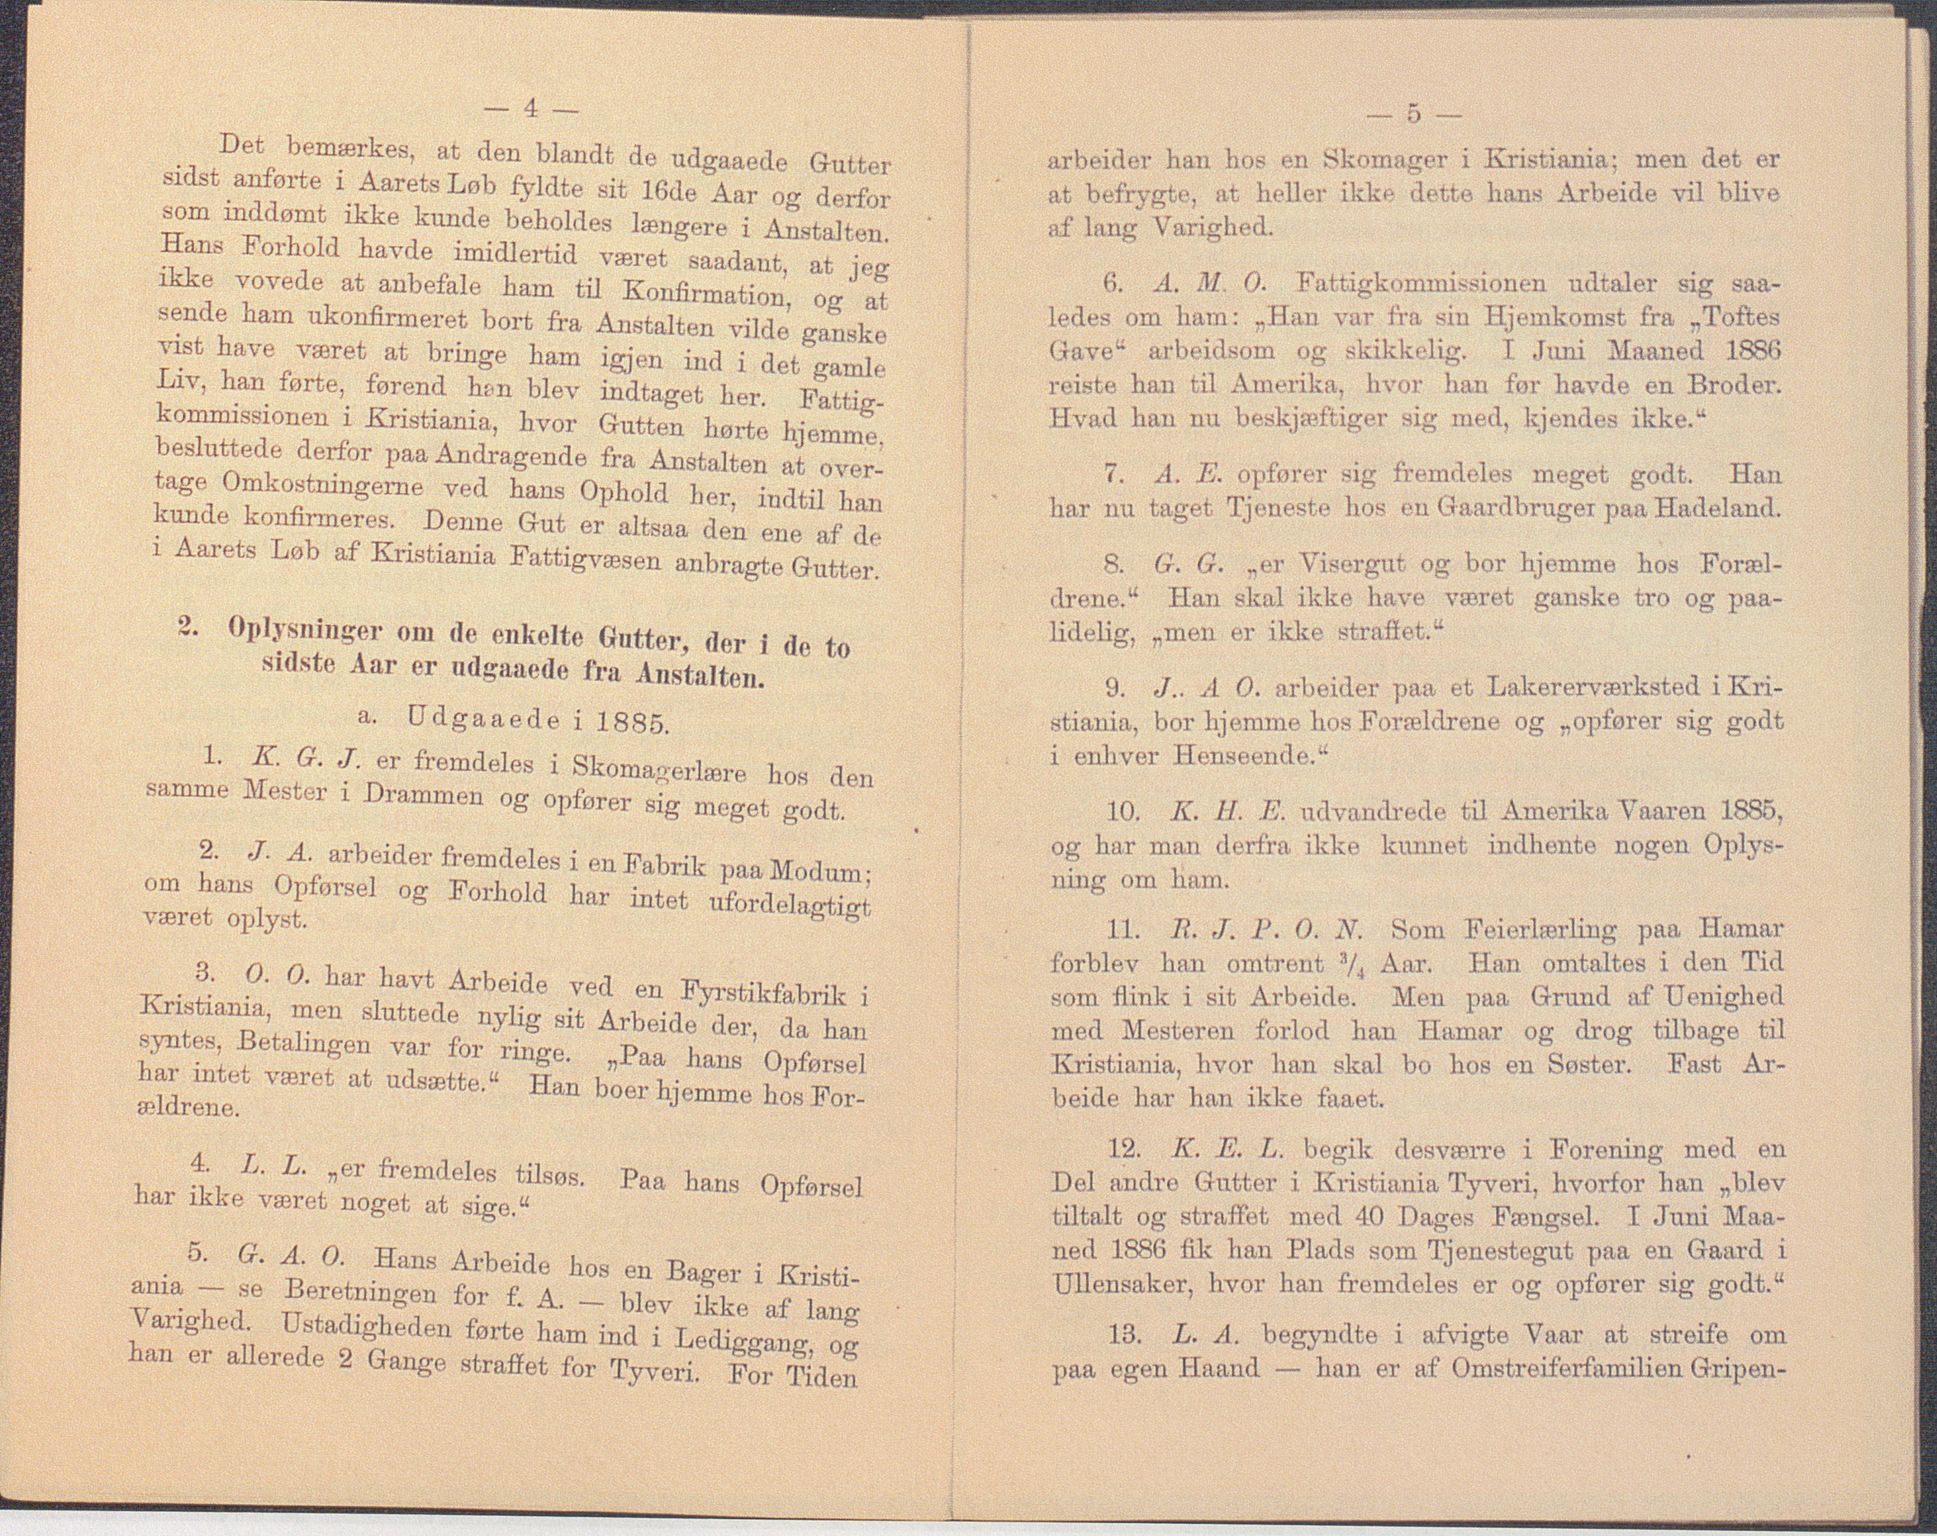 — 4 —
Det bemærkes, at den blandt de udgaaede Gutter
sidst anførte i Aarets Løb fyldte sit 16de Aar og derfor
som inddømt ikke kunde beholdes længere i Anstalten.
Hans Forhold havde imidlertid været saadant, at jeg
ikke vovede at anbefale ham til Konfirmation, og at
sende ham ukonfirmeret bort fra Anstalten vilde ganske
vist have været at bringe ham igjen ind i det gamle
Liv, han førte, førend han blev indtaget her. Fattig-
kommissionen i Kristiania, hvor Gutten hørte hjemme,
besluttede derfor paa Andragende fra Anstalten at over-
tage Omkostningerne ved hans Ophold her, indtil han
kunde konfirmeres. Denne Gut er altsaa den ene af de
i Aarets Løb af Kristiania Fattigvæsen anbragte Gutter.
2. Oplysninger om de enkelte Gutter, der i de to
sidste Aar er udgaaede fra Anstalten.
a. Udgaaede i 1885.
1. K. G. J. er fremdeles i Skomagerlære hos den
samme Mester i Drammen og opfører sig meget godt.
2. J. A. arbeider fremdeles i en Fabrik paa Modum;
om hans Opførsel og Forhold har intet ufordelagtigt
været oplyst.
3. O. O. har havt Arbeide ved en Fyrstikfabrik i
Kristiania, men sluttede nylig sit Arbeide der, da han
syntes, Betalingen var for ringe. „Paa hans Opførsel
har intet været at udsætte.“ Han boer hjemme hos For-
ældrene.
4. L. L. „er fremdeles tilsøs. Paa hans Opførsel
har ikke været noget at sige.“
5. G. A. O. Hans Arbeide hos en Bager i Kristi-
ania — se Beretningen for f. A. — blev ikke af lang
Varighed. Ustadigheden førte ham ind i Lediggang, og
han er allerede 2 Gange straffet for Tyveri. For Tiden
— 5 —
arbeider han hos en Skomager i Kristiania; men det er
at befrygte, at heller ikke dette hans Arbeide vil blive
af lang Varighed.
6. A. M. O. Fattigkommissionen udtaler sig saa-
ledes om ham: „Han var fra sin Hjemkomst fra „Toftes
Gave“ arbeidsom og skikkelig. I Juni Maaned 1886
reiste han til Amerika, hvor han før havde en Broder.
Hvad han nu beskjæftiger sig med, kjendes ikke.“
7. A. E. opfører sig fremdeles meget godt. Han
har nu taget Tjeneste hos en Gaardbruger paa Hadeland.
8. G. G. „er Visergut og bor hjemme hos Foræl-
drene.“ Han skal ikke have været ganske tro og paa-
lidelig, „men er ikke straffet.“
9. J.. A O. arbeider paa et Lakererværksted i Kri-
stiania, bor hjemme hos Forældrene og „opfører sig godt
i enhver Henseende.“
10. K. H. E. udvandrede til Amerika Vaaren 1885,
og har man derfra ikke kunnet indhente nogen Oplys-
ning om ham.
11. R. J. P. O. N. Som Feierlærling paa Hamar
forblev han omtrent ¾ Aar. Han omtaltes i den Tid
som flink i sit Arbeide. Men paa Grund af Uenighed
med Mesteren forlod han Hamar og drog tilbage til
Kristiania, hvor han skal bo hos en Søster. Fast Ar-
beide har han ikke faaet.
12. K. E. L. begik desværre i Forening med en
Del andre Gutter i Kristiania Tyveri, hvorfor han „blev
tiltalt og straffet med 40 Dages Fængsel. I Juni Maa-
ned 1886 fik han Plads som Tjenestegut paa en Gaard i
Ullensaker, hvor han fremdeles er og opfører sig godt.“
13. L. A. begyndte i afvigte Vaar at streife om
paa egen Haand — han er af Omstreiferfamilien Gripen-